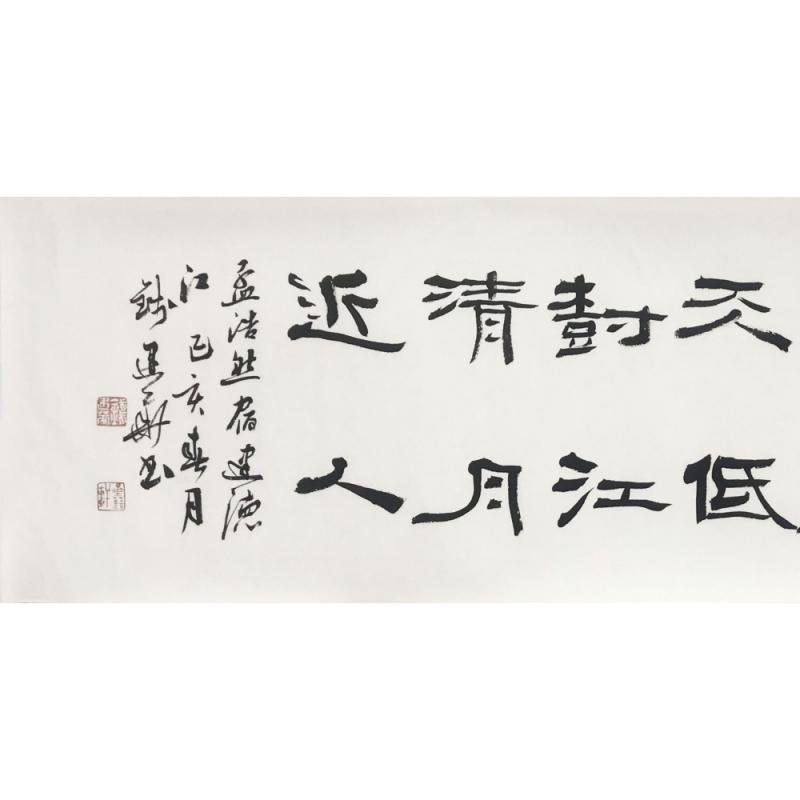 天低
尌江
清月
近人
孟浩然宿建德
江 己亥春月
书